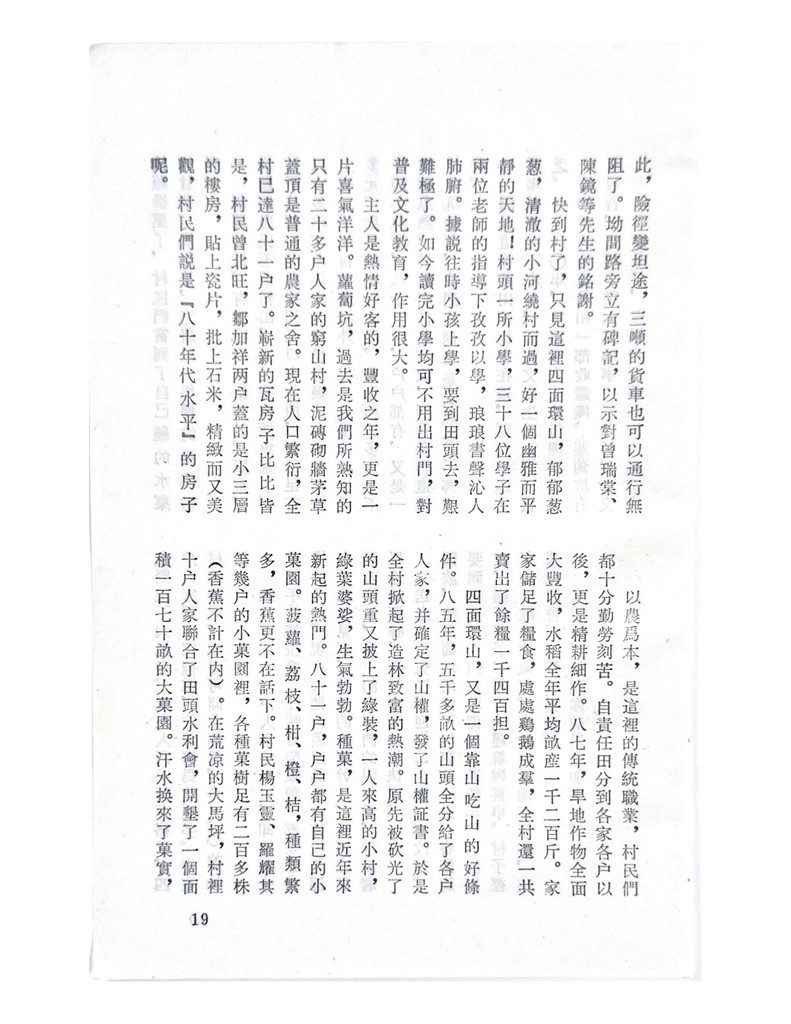 此，險徑變坦途，三噸的貨車也可以通行無
阻了。坳間路旁立有碑記，以示對曾瑞棠、
陳鏡等先生的銘謝。
快到村了，只見這裡四面環山，郁郁葱
葱，清澈的小河繞村而過，好一個幽雅而平
靜的天地！村頭一所小學，三十八位學子在
兩位老師的指導下孜孜以學，琅琅書聲沁人
肺腑。據説往時小孩上學，要到田頭去，艱
難極了。如今讀完小學均可不用出村門，對
普及文化教育，作用很大。
主人是熱情好客的，豐收之年，更是一
片喜氣洋洋。蘿蔔坑，過去是我們所熟知的
只有二十多户人家的窮山村，泥磚砌牆茅草
蓋頂是普通的農家之舍。現在人口繁衍，全
村已達八十一户了。嶄新的瓦房子比比皆
是，村民曾北旺，鄒加祥两户蓋的是小三層
的樓房，貼上瓷片，批上石米，精緻而又美
觀，村民們説是『八十年代水平』的房子
呢。
以農爲本，是這裡的傳統職業，村民們
都十分勤勞刻苦。自責任田分到各家各户以
後，更是精耕細作。八七年，旱地作物全面
大豐收，水稻全年平均畝産一千二百斤。家
家儲足了糧食，處處鷄鵝成羣，全村還一共
賣出了餘糧一千四百担。
四面環山，又是一個靠山吃山的好條
件。八五年，五千多畝的山頭全分給了各户
人家，并確定了山權，發了山權証書。於是
全村掀起了造林致富的熱潮。原先被砍光了
的山頭重又披上了綠裝，一人來高的小村，
綠葉婆娑，生氣勃勃。種菓，是這裡近年來
新起的熱門。八十一户，户户都有自己的小
菓園。菠蘿、荔枝、柑、橙、桔，種類繁
多，香蕉更不在話下。村民楊玉靈、羅耀其
等幾户的小菓園裡，各種菓樹足有二百多株
（香蕉不計在内）。在荒凉的大馬坪，村裡
十户人家聯合了田頭水利會，開墾了一個面
積一百七十畝的大菓園。汗水换來了菓實，
19